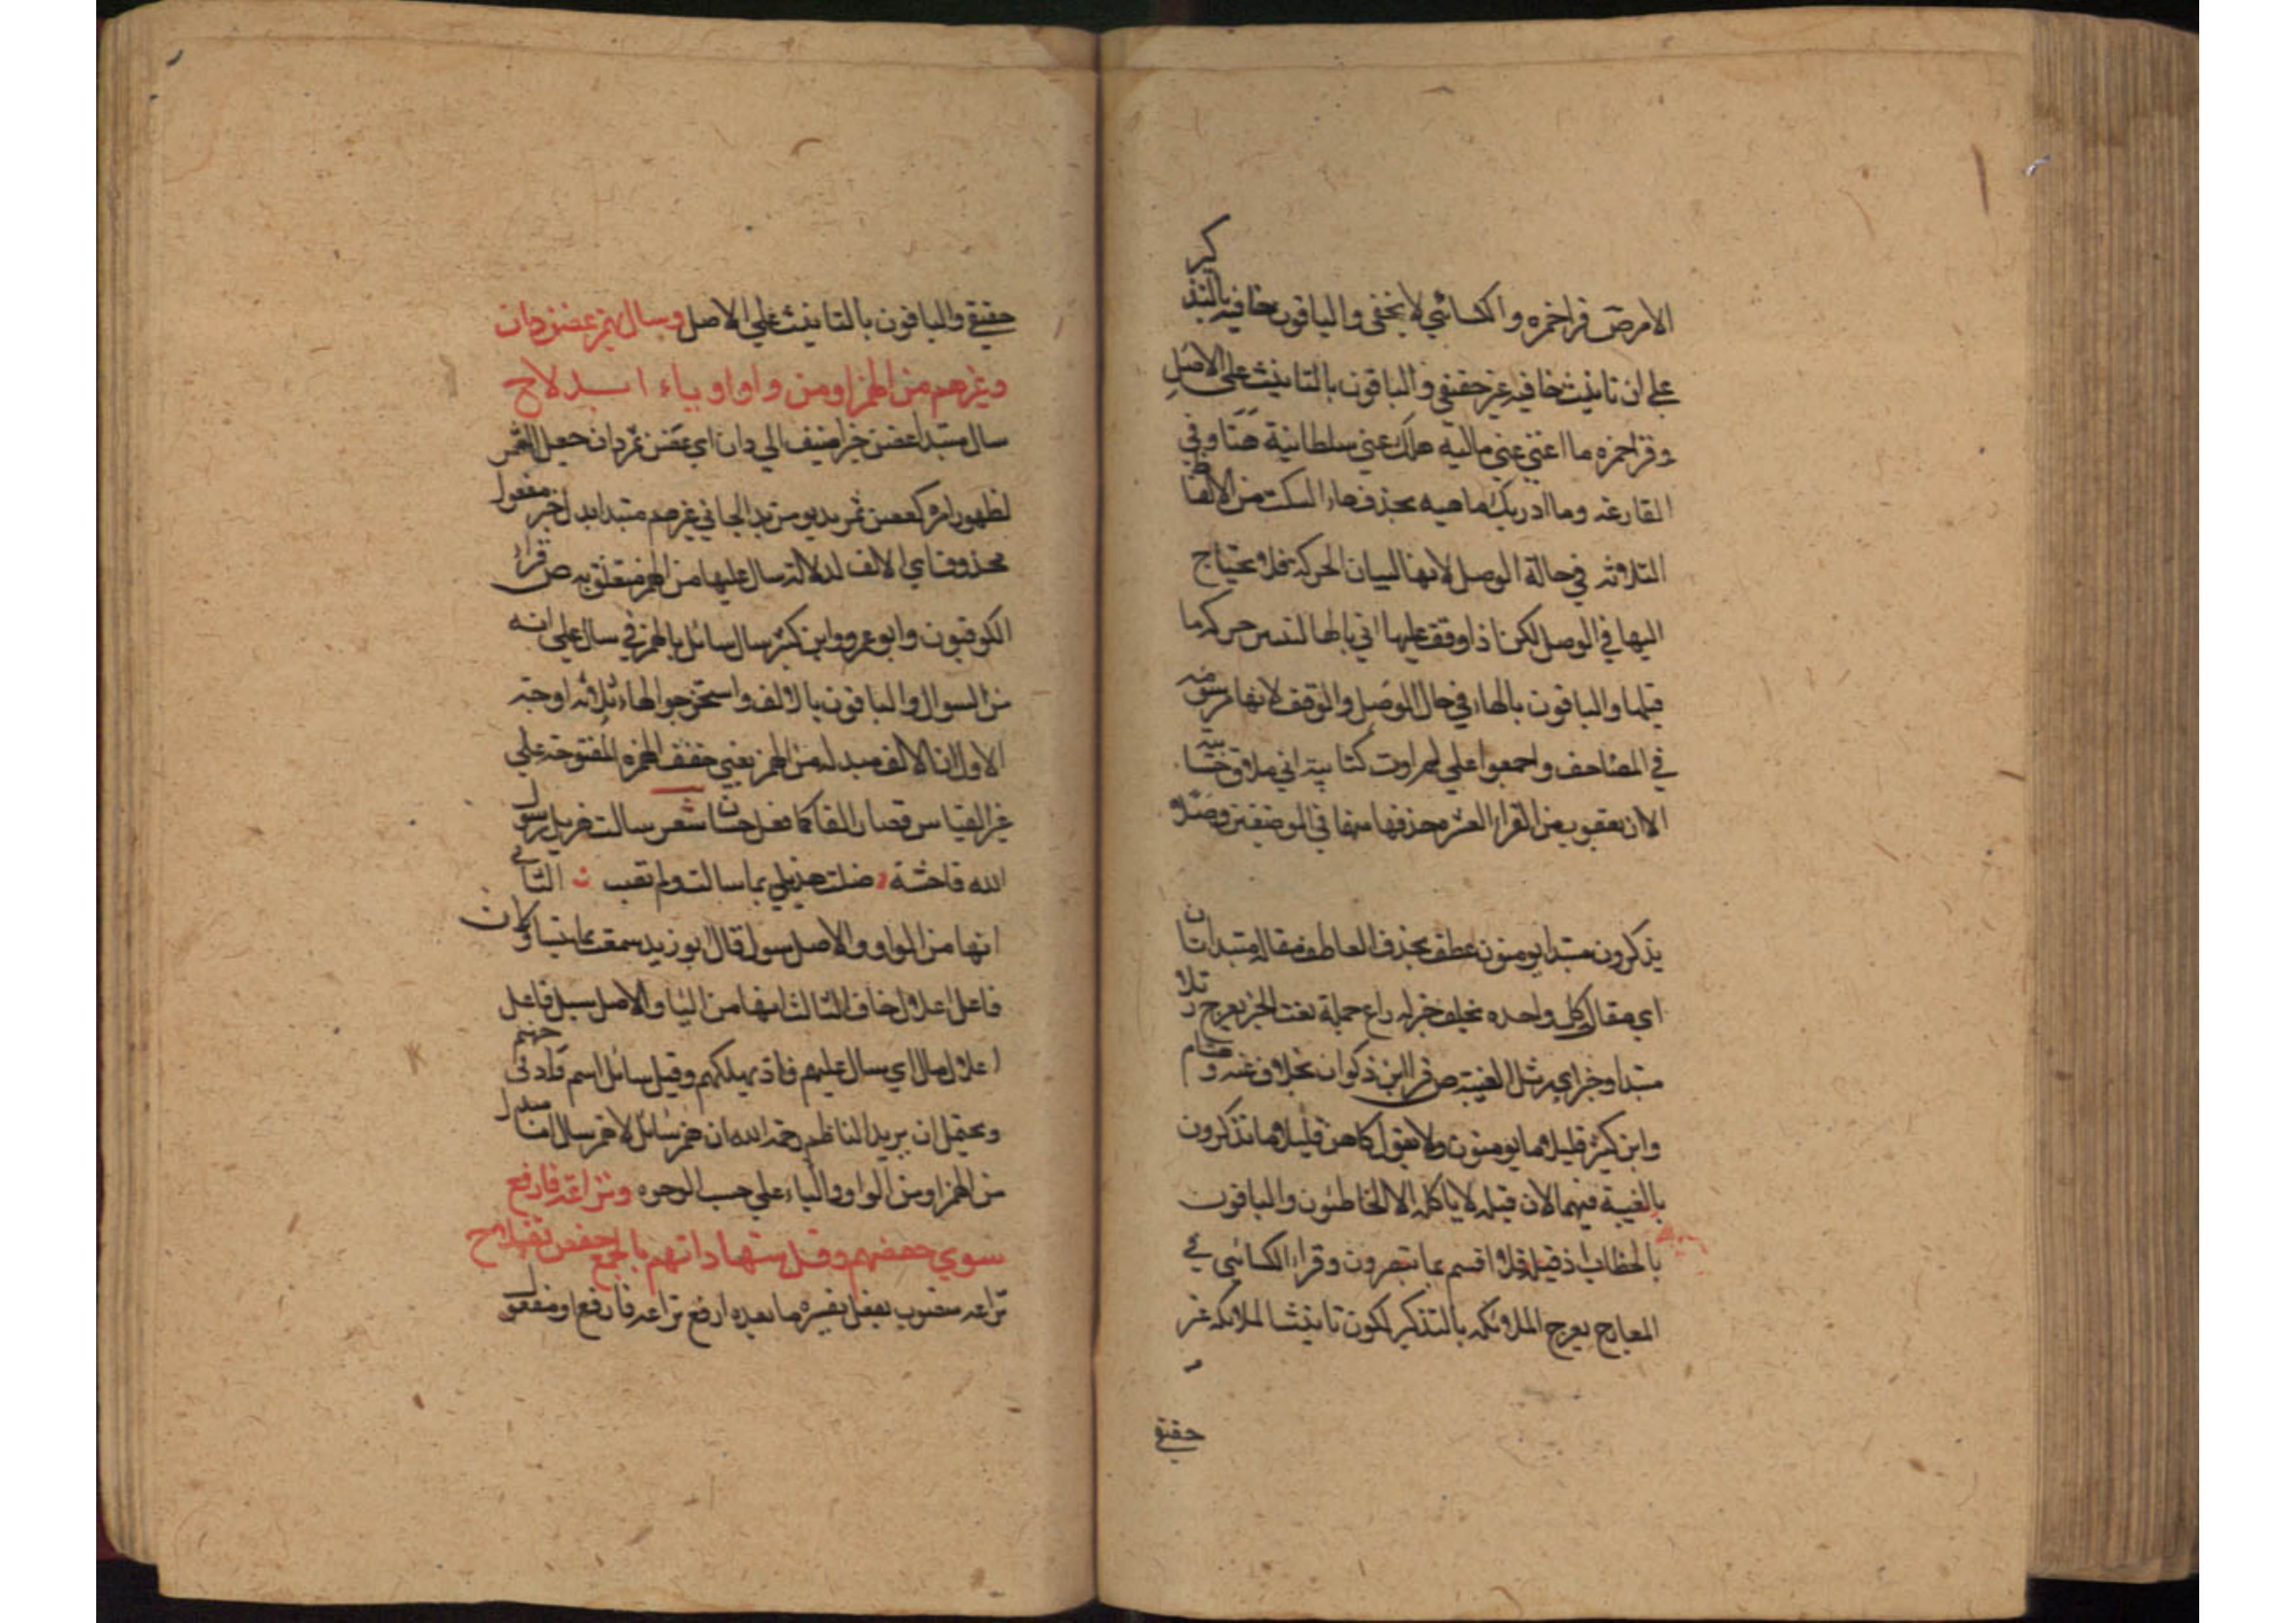 الارض قرا حمزه والكسائي لا يخفى والباقون خافيه بالتذكير
على ان تانيث خافيه غير حقيقي والباقون بالتانيث على الاصل
وقرا حمزه ما اغني عني ماليه هلك عني سلطانية هنا وفي
القارعه وما ادريك ماهيه بحذف هاء السكت من الالفاظ
الثلاثه في حالة الوصل لانها لبيان الحركه فلا يحتاج
اليها في الوصل لكن اذا وقف عليها اتي بالها لتبين حركه ما
قبلها والباقون بالهاء في حال الوصل والوقف لانها مرسومه
في المصاحف واجمعوا على لم اوت كتابيه اني ملاق حسابيه
الا ان يعقوب من القراء العشر حذفها منها في الموضعين وصلا
يذكرون مبتدا يومنون عطف بحذف العاطف مقاله مبتدا ثان
اي مقال كل واحده بخلف خبر له داع جملة نعت الخبر يعرج رتلا
مبتدا وخبر اي رتل الغيبة ص قرا ابن ذكوان بخلاف عنه وهشام
وابن كثير قليلا ما يومنون ولا بقول كاهن قليلا ما تذكرون
بالغيبة فيهما لان قبله لا ياكله الا الخاطئون والباقون
بالخطاب اذ قبله فلا اقسم بما تبصرون وقراء الكسائي في
المعارج يعرج الملائكه بالتذكير لكون تانيث الملائكه غير
حقيقي
حقيقي والباقون بالتانيث علي الاصل وسال بهمز غصن دان
وغيرهم من الهمز او من واو او ياء ابدلا ح
سال مبتدا غصن خبر اضيف الي دان اي غصن ثمر دان جعل الثمر
لظهور امره كغصن ثمر يدنو من يد الجاني غيرهم مبتدا ابدل خبر مفعول
محذوف اي الالف لدلالة سال عليها من الهمز متعلق به ص قرا
الكوفيون وابو عمرو وابن كثير سال سائل بالهمز في سال علي انه
من السوال والباقون بالالف واستخرجوا لها ثلاثه اوجه
الاول ان الالف مبدله من الهمز يعني خفف الهمزه المفتوحه علي
غير القياس فصار الفا كما فعل حسان شعر سالت هذيل رسول
الله فاحشة ضلت هذيل بما سالت ولم تصب الثاني
انها من الواو والاصل سول قال ابو زيد سمعت
فاعل اعلال خاف الثالث انها من اليا والاصل سيل فاعل
اعلال مال اي سال عليهم واد يهلكهم وقيل سائل اسم واد في جهنم
ويحتمل ان يريد الناظم رحمه الله ان همز سائل لا همز سال مبدل
من الهمز او من الواو والياء علي حسب الوجوه ونزاعة فارفع
سوي حفصهم وقل شهاداتهم بالجمع حفص تقبلا ح
نزاعه منصوب بفعل يفسره ما بعده ارفع نزاعه فارفع او مفعول